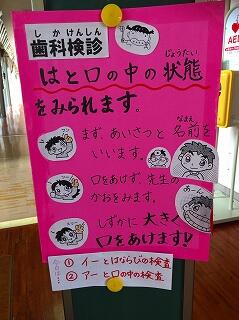 しかけんしん
歯科検診
はと口の中の状態
じょうたい
をみられます。
まず、あいさつと名前を
なまえ
いいます。
口をあけず、先生の
かおをみます。
あーん
しずかに大きく
口をあけます!!
① イーとはならびの検査
② アーと口の中の検査
AED